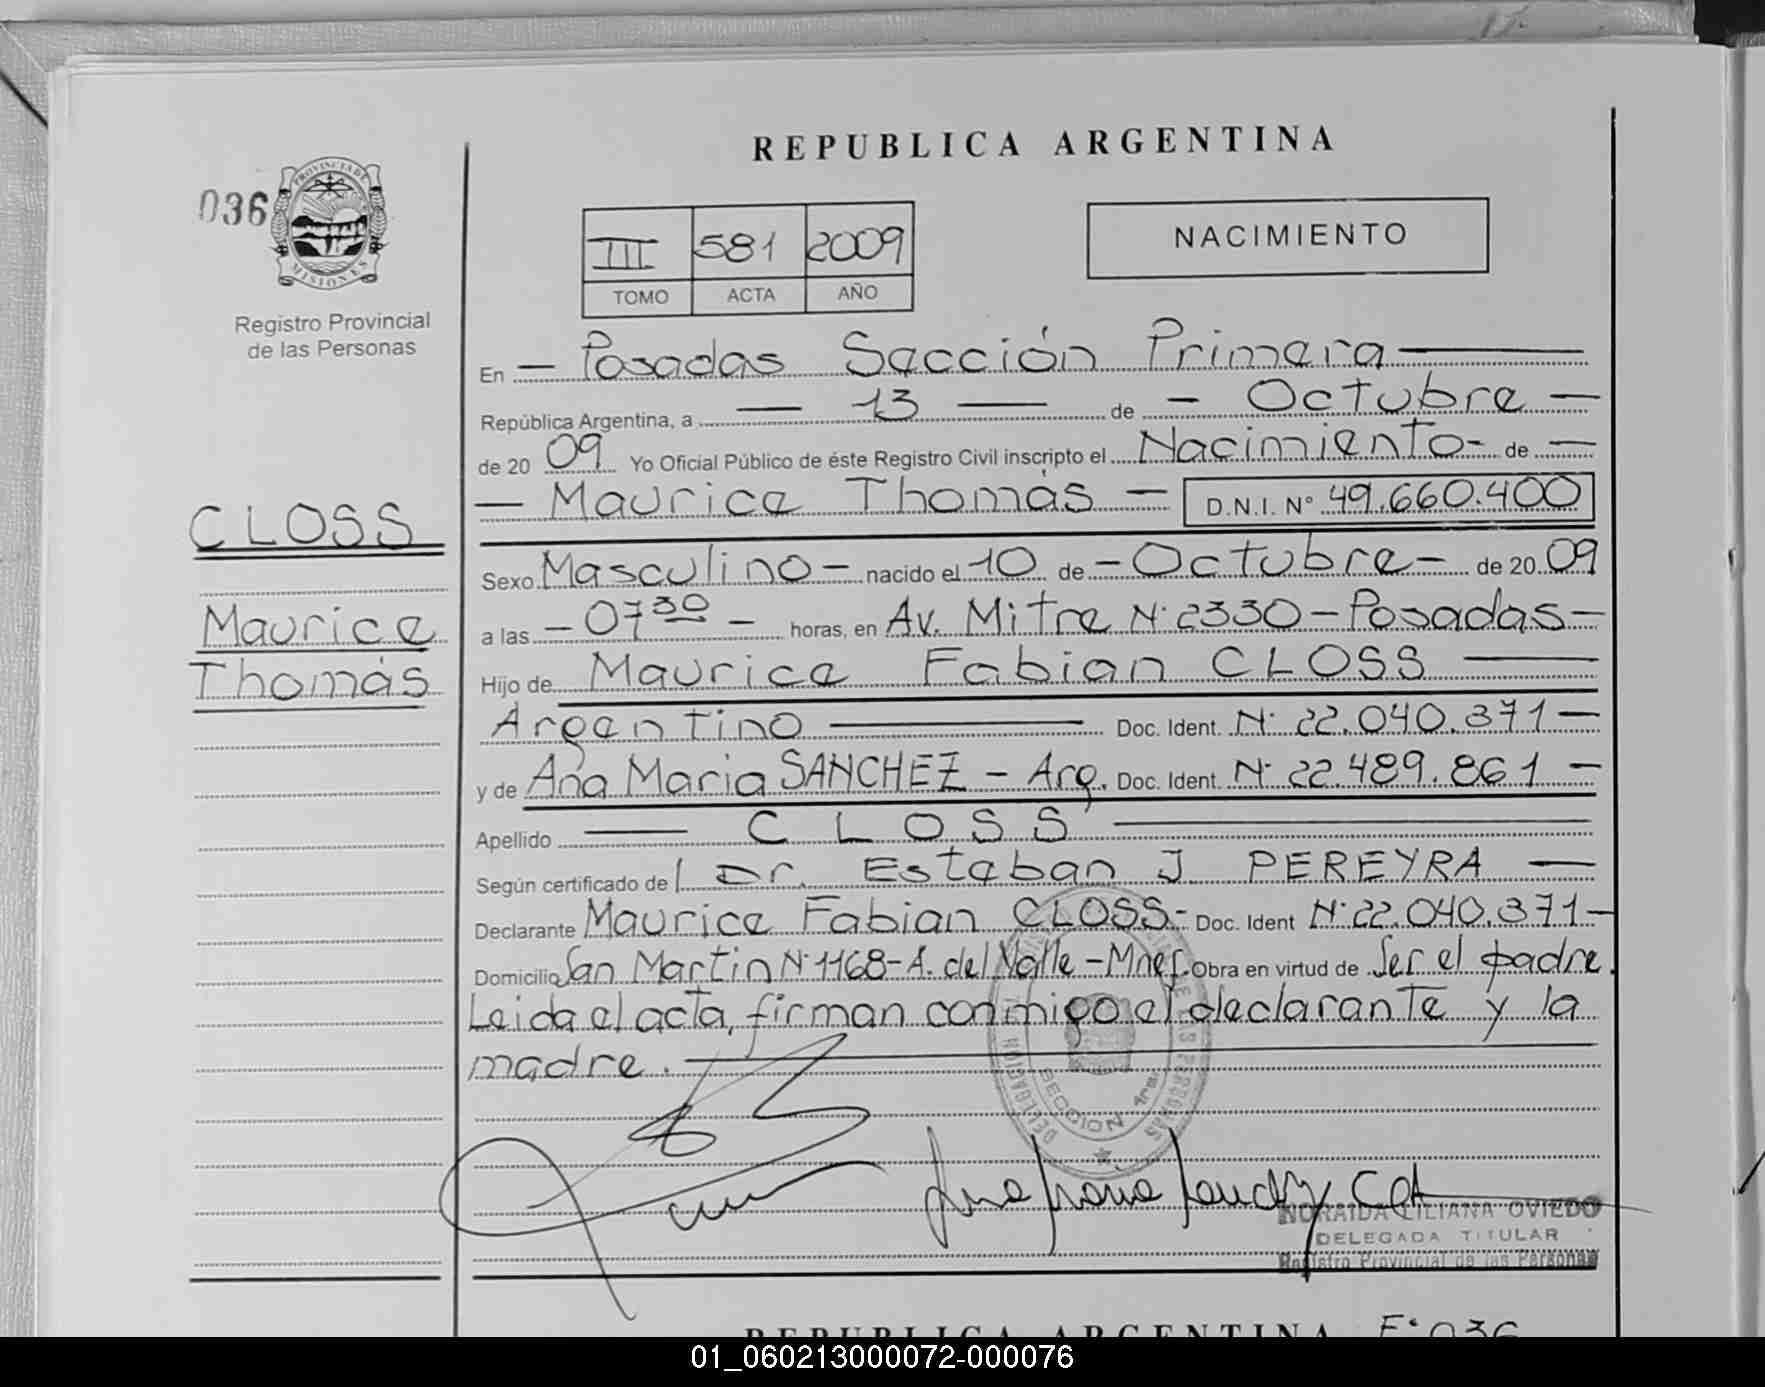 REPUBLICA ARGENTINA
036
PROVINCIA DE
MISIONES
Registro Provincial
de las Personas
III 581 2009
TOMO ACTA AÑO
NACIMIENTO
En — Posadas Sección Primera —
República Argentina, a — 13 — de — Octubre —
de 20 09 Yo Oficial Público de éste Registro Civil inscripto el Nacimiento - de —
— Maurice Thomás — D.N.I. N° 49.660.400
CLOSS
Maurice
Thomás
Sexo Masculino - nacido el 10 de - Octubre - de 20 09
a las - 07 30 - horas, en Av. Mitre N° 2330 - Posadas -
Hijo de Maurice Fabian CLOSS —
Argentino — Doc. Ident. N° 22.040.371 —
y de Ana Maria SANCHEZ - Arg. Doc. Ident. N° 22.489.861 —
Apellido — CLOSS —
Según certificado de l Dr. Esteban J PEREYRA —
Declarante Maurice Fabian CLOSS - Doc. Ident N° 22.040.371 -
Domicilio San Martin N° 1168 - A. del Valle - Mnes. Obra en virtud de Ser el padre.
Leida el acta, firman conmigo el declarante y la
madre. —
SECCION 1ra.
NORAIDA LILIANA OVIEDO
DELEGADA TITULAR
Registro Provincial de las Personas
REPUBLICA ARGENTINA F° 036
01_060213000072-000076